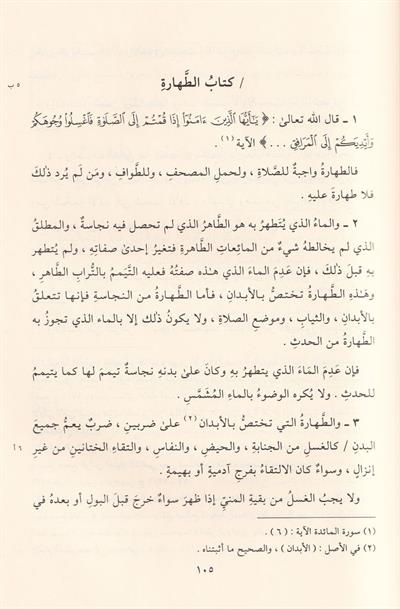 / كتابُ الطَّهارةِ
٥ ب
١ ـ قال الله تعالىٰ : ﴿ يَٰٓأَيُّهَا ٱلَّذِينَ ءَامَنُوٓا۟ إِذَا قُمْتُمْ إِلَى ٱلصَّلَوٰةِ فَٱغْسِلُوا۟ وُجُوهَكُمْ
وَأَيْدِيَكُمْ إِلَى ٱلْمَرَافِقِ . . . ﴾ الآية (١) .
فالطهارةُ واجبةٌ للصَّلاةِ ، ولحملِ المصحفِ ، وللطَّوافِ ، ومَن لَم يُرد ذلكَ
فلا طهارةَ عليهِ .
٢ ـ والماءُ الذي يُتَطهرُ به هو الطَّاهرُ الذي لم تحصل فيه نجاسةٌ ، والمطلقُ
الذي لم يخالطهُ شيءٌ من المائِعاتِ الطَّاهرةِ فتغيرُ إحدىٰ صفاتِهِ ، ولم يُتطهر
بهِ قبلَ ذلكَ ، فإن عَدِمَ الماءَ الذي هٰذه صفتُهُ فعليه التَّيَممُ بالتُّرابِ الطَّاهرِ ،
وهٰذِهِ الطَّهارةُ تختصُّ بالأبدانِ ، فأما الطَّهارةُ من النجاسةِ فإنها تتعلقُ
بالأبدانِ ، والثيابِ ، وموضعِ الصلاةِ ، ولا يكونُ ذلك إلا بالماء الذي تجوزُ به
الطَّهارةُ من الحدثِ .
فإن عَدِمَ الماءَ الذي يتطهرُ بهِ وكانَ علىٰ بدنهِ نجاسةٌ تيممَ لها كما يتيممُ
للحدثِ . ولا يُكره الوضوءُ بالماءِ المُشَمَّسِ .
٣ ـ والطَّهارةُ التي تختصُّ بالأبدانِ (٢) علىٰ ضربينِ ، ضربٌ يعمُّ جميعَ
البدنِ / كالغسلِ من الجنابةِ ، والحيضِ ، والنفاسِ ، والتقاءِ الختانينِ من غيرِ
٦ أ
إنزالٍ ، وسواءٌ كان الالتقاءُ بفرجِ آدميةٍ أو بهيمةٍ .
ولا يجبُ الغسلُ من بقيةِ المنيِّ إذا ظهرَ سواءٌ خرجَ قبلَ البولِ أو بعدهُ في
(١) سورة المائدة الآية : ( ٦ ) .
(٢) في الأصل : ( الأبدان ) ، والصحيح ما أثبتناه .
١٠٥